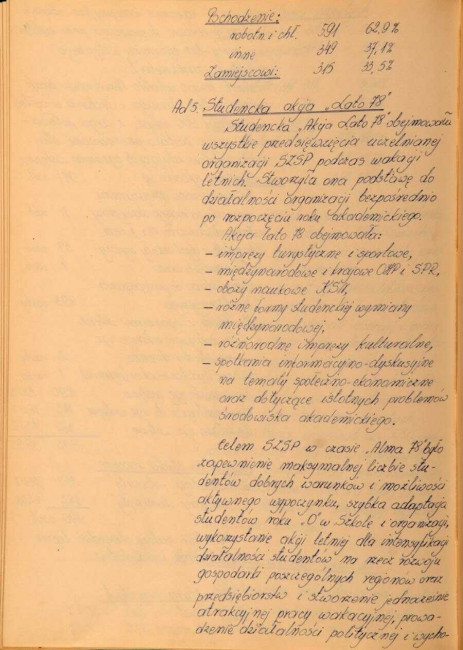 Pochodzenie:
robotn. i chł. 591 62,9%
inne 349 37,1%
Zamiejscowi: 315 33,5%
Ad 5. Studencka akcja „Lato 78"
Studencka „Akcja Lato 78" obejmowała
wszystkie przedsięwzięcia uczelnianej
organizacji SZSP podczas wakacji
letnich. Stworzyła ona podstawę do
działalności organizacji bezpośrednio
po rozpoczęciu roku akademickiego.
Akcja lato 78 obejmowała:
– imprezy turystyczne i sportowe,
– międzynarodowe i krajowe OHP i SPR,
– obozy naukowe
– różne formy studenckiej wymiany
międzynarodowej,
– różnorodne imprezy kulturalne,
– spotkania informacyjno-dyskusyjne
na tematy społeczno-ekonomiczne
oraz dotyczące istotnych problemów
środowiska akademickiego.
Celem SZSP w czasie „Alma 78" było
zapewnienie maksymalnej liczbie stu-
dentów dobnych warunków i możliwości
aktywnego wypoczynku, szybka adaptacja
studentów roku „0" w Szkole i organizacji,
wykorzystanie akcji letniej dla intensyfikacji
działalności studentów na rzecz rozwoju
gospodarki poszczególnych regionów oraz
przedsiębiorstw i stworzenie jednocześnie
atrakcyjnej pracy wakacyjnej, prowa-
dzenie działalności politycznej i wycho-